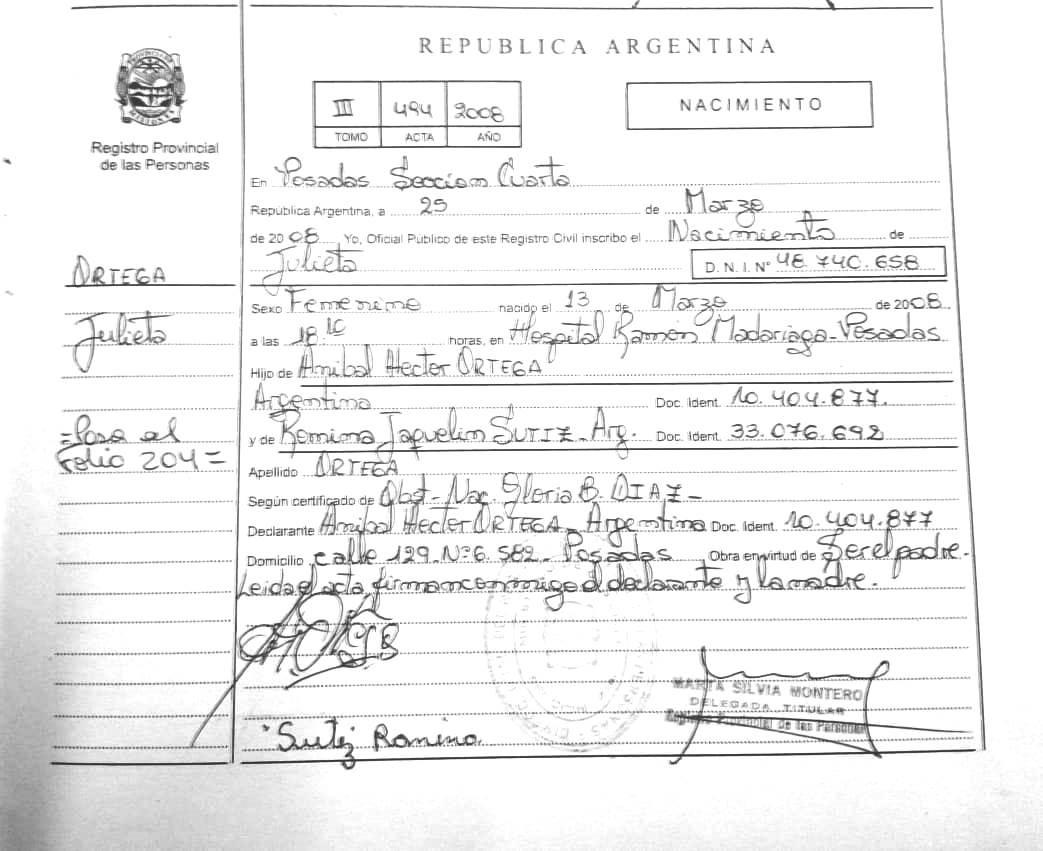 REPUBLICA ARGENTINA
III 494 2008
TOMO ACTA AÑO
NACIMIENTO
Registro Provincial
de las Personas
En Posadas Sección Cuarta
Republica Argentina, a 25 de Marzo
de 2008 Yo, Oficial Publico de este Registro Civil inscribo el Nacimiento de
Julieta D.N.I. Nº 48.740.658
ORTEGA
Julieta
Sexo Femenino nacido el 13 de Marzo de 2008
a las 18.10 horas, en Hospital Ramón Madariaga-Posadas
Hijo de Anibal Hector ORTEGA
Argentino Doc. Ident. 10.404.877.
y de Romina Jaquelin SUTIZ-Arg. Doc. Ident. 33.076.692
=Pasa al
Folio 204=
Apellido ORTEGA
Según certificado de Obst-Nac. Gloria B. DIAZ-
Declarante Anibal Hector ORTEGA-Argentino Doc. Ident. 10.404.877
Domicilio calle 129.Nº6.582.-Posadas Obra en virtud de Ser el padre.
Leida el acta firman conmigo el declarante y la madre.
MARTA SILVIA MONTERO
DELEGADA TITULAR
Registro Provincial de las Personas
Sutiz Romina.